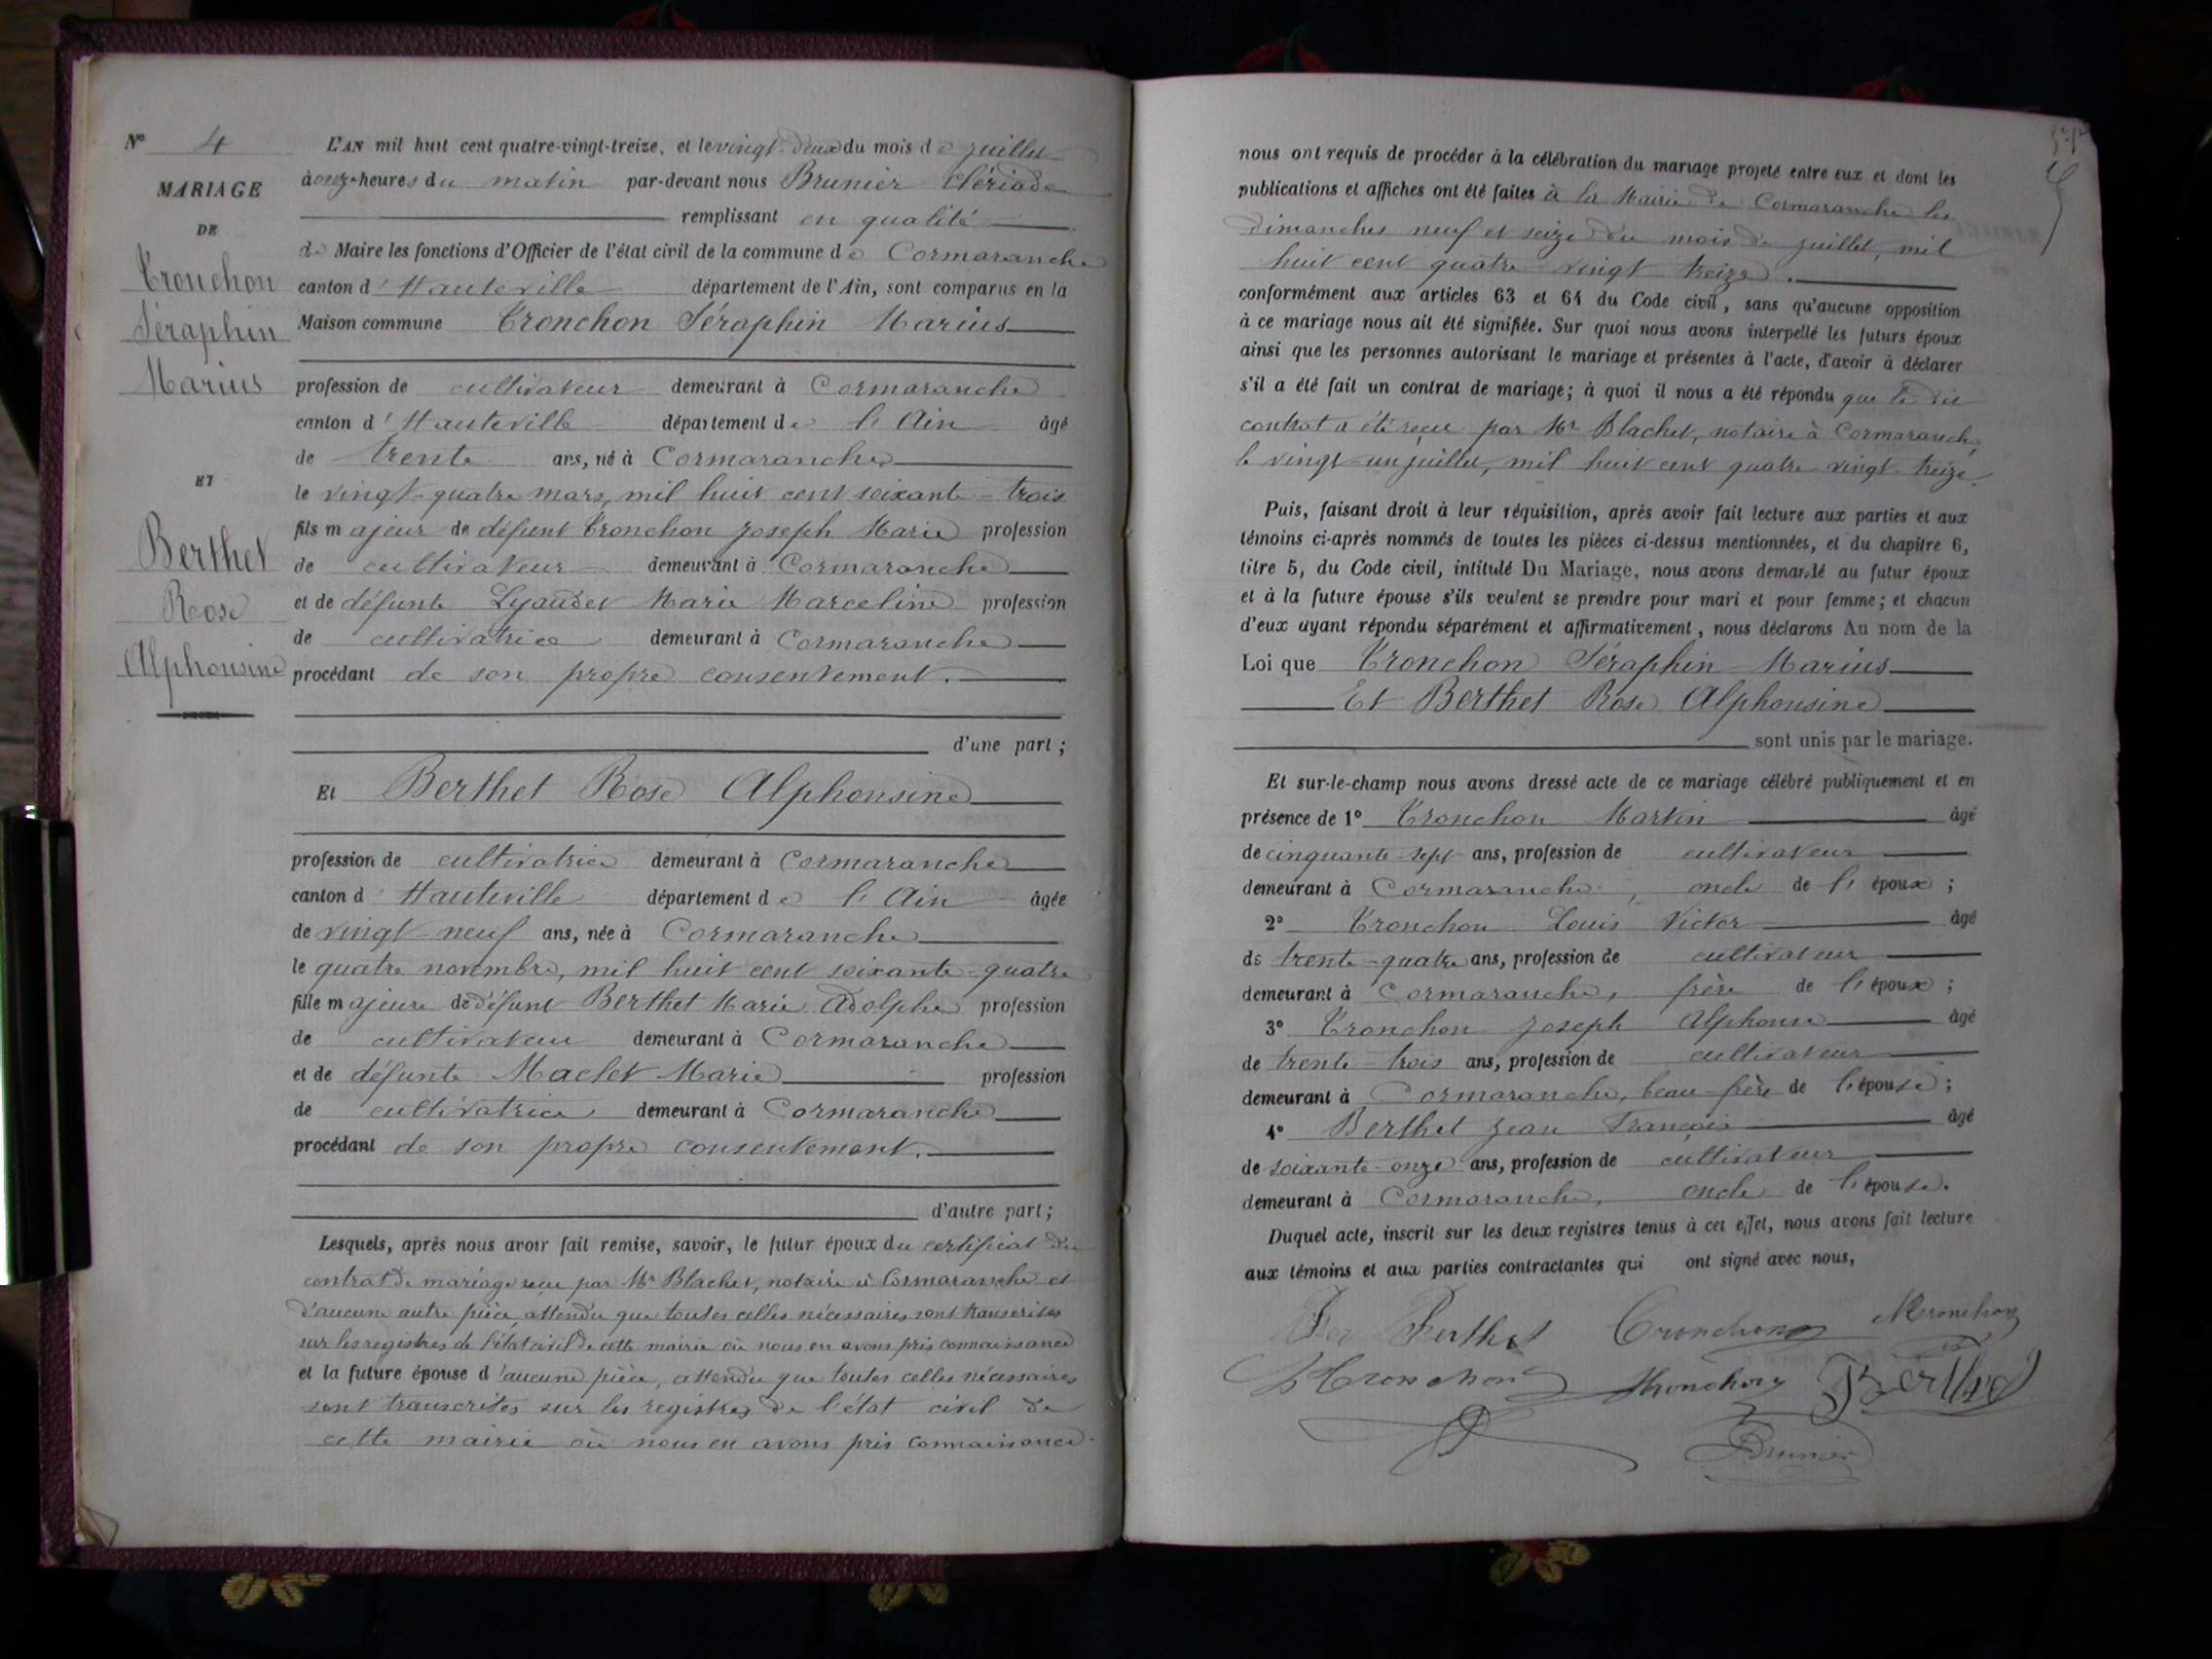 N° 4
MARIAGE
DE
Tronchon
Séraphin
Marius
ET
Berthet
Rose
Alphonsine
L'AN mil huit cent quatre-vingt-treize, et le vingt-deux du mois de juillet
à onze heures du matin par-devant nous Brunier Clériade
remplissant en qualité
de Maire les fonctions d'Officier de l'état civil de la commune de Cormaranche
canton d'Hauteville département de l'Ain, sont comparus en la
Maison commune Tronchon Séraphin Marius
profession de cultivateur demeurant à Cormaranche
canton d'Hauteville département de l'Ain âgé
de trente ans, né à Cormaranche
le vingt-quatre mars, mil huit cent soixante-trois
fils majeur de défunt Tronchon Joseph Marie profession
de cultivateur demeurant à Cormaranche
et de défunte Lyaudet Marie Marceline profession
de cultivatrice demeurant à Cormaranche
procédant de son propre consentement.
d'une part;
Et Berthet Rose Alphonsine
profession de cultivatrice demeurant à Cormaranche
canton d'Hauteville département de l'Ain âgée
de vingt-neuf ans, née à Cormaranche
le quatre novembre, mil huit cent soixante-quatre
fille majeure de défunt Berthet Marie Adolphe profession
de cultivateur demeurant à Cormaranche
et de défunte Maclet Marie profession
de cultivatrice demeurant à Cormaranche
procédant de son propre consentement.
d'autre part;
Lesquels, après nous avoir fait remise, savoir, le futur époux du certificat du
contrat de mariage reçu par Mr Blachet, notaire à Cormaranche et
d'aucune autre pièce, attendu que toutes celles nécessaires sont transcrites
sur les registres de l'état civil de cette mairie où nous en avons pris connaissance
et la future épouse d'aucune pièce, attendu que toutes celles nécessaires
sont transcrites sur les registres de l'état civil de
cette mairie où nous en avons pris connaissance.
nous ont requis de procéder à la célébration du mariage projeté entre eux et dont les
publications et affiches ont été faites à la Mairie de Cormaranche les
dimanches neuf et seize du mois de juillet, mil
huit cent quatre-vingt treize.
conformément aux articles 63 et 64 du Code civil, sans qu'aucune opposition
à ce mariage nous ait été signifiée. Sur quoi nous avons interpellé les futurs époux
ainsi que les personnes autorisant le mariage et présentes à l'acte, d'avoir à déclarer
s'il a été fait un contrat de mariage; à quoi il nous a été répondu que le dit
contrat a été reçu par Mr Blachet, notaire à Cormaranche,
le vingt-un juillet, mil huit cent quatre-vingt-treize.
Puis, faisant droit à leur réquisition, après avoir fait lecture aux parties et aux
témoins ci-après nommés de toutes les pièces ci-dessus mentionnées, et du chapitre 6,
titre 5, du Code civil, intitulé Du Mariage, nous avons demandé au futur époux
et à la future épouse s'ils veulent se prendre pour mari et pour femme; et chacun
d'eux ayant répondu séparément et affirmativement, nous déclarons Au nom de la
Loi que Tronchon Séraphin Marius
Et Berthet Rose Alphonsine
sont unis par le mariage.
Et sur-le-champ nous avons dressé acte de ce mariage célébré publiquement et en
présence de 1° Tronchon Martin âgé
de cinquante-sept ans, profession de cultivateur
demeurant à Cormaranche, oncle de l'époux;
2° Tronchon Louis Victor âgé
de trente-quatre ans, profession de cultivateur
demeurant à Cormaranche, frère de l'époux;
3° Tronchon Joseph Alphonse âgé
de trente-trois ans, profession de cultivateur
demeurant à Cormaranche, beau-frère de l'épouse;
4° Berthet Jean François âgé
de soixante-onze ans, profession de cultivateur
demeurant à Cormaranche, oncle de l'épouse.
Duquel acte, inscrit sur les deux registres tenus à cet effet, nous avons fait lecture
aux témoins et aux parties contractantes qui ont signé avec nous,
Berthet Tronchon MTronchon
Tronchon Tronchon Berthet
Brunier